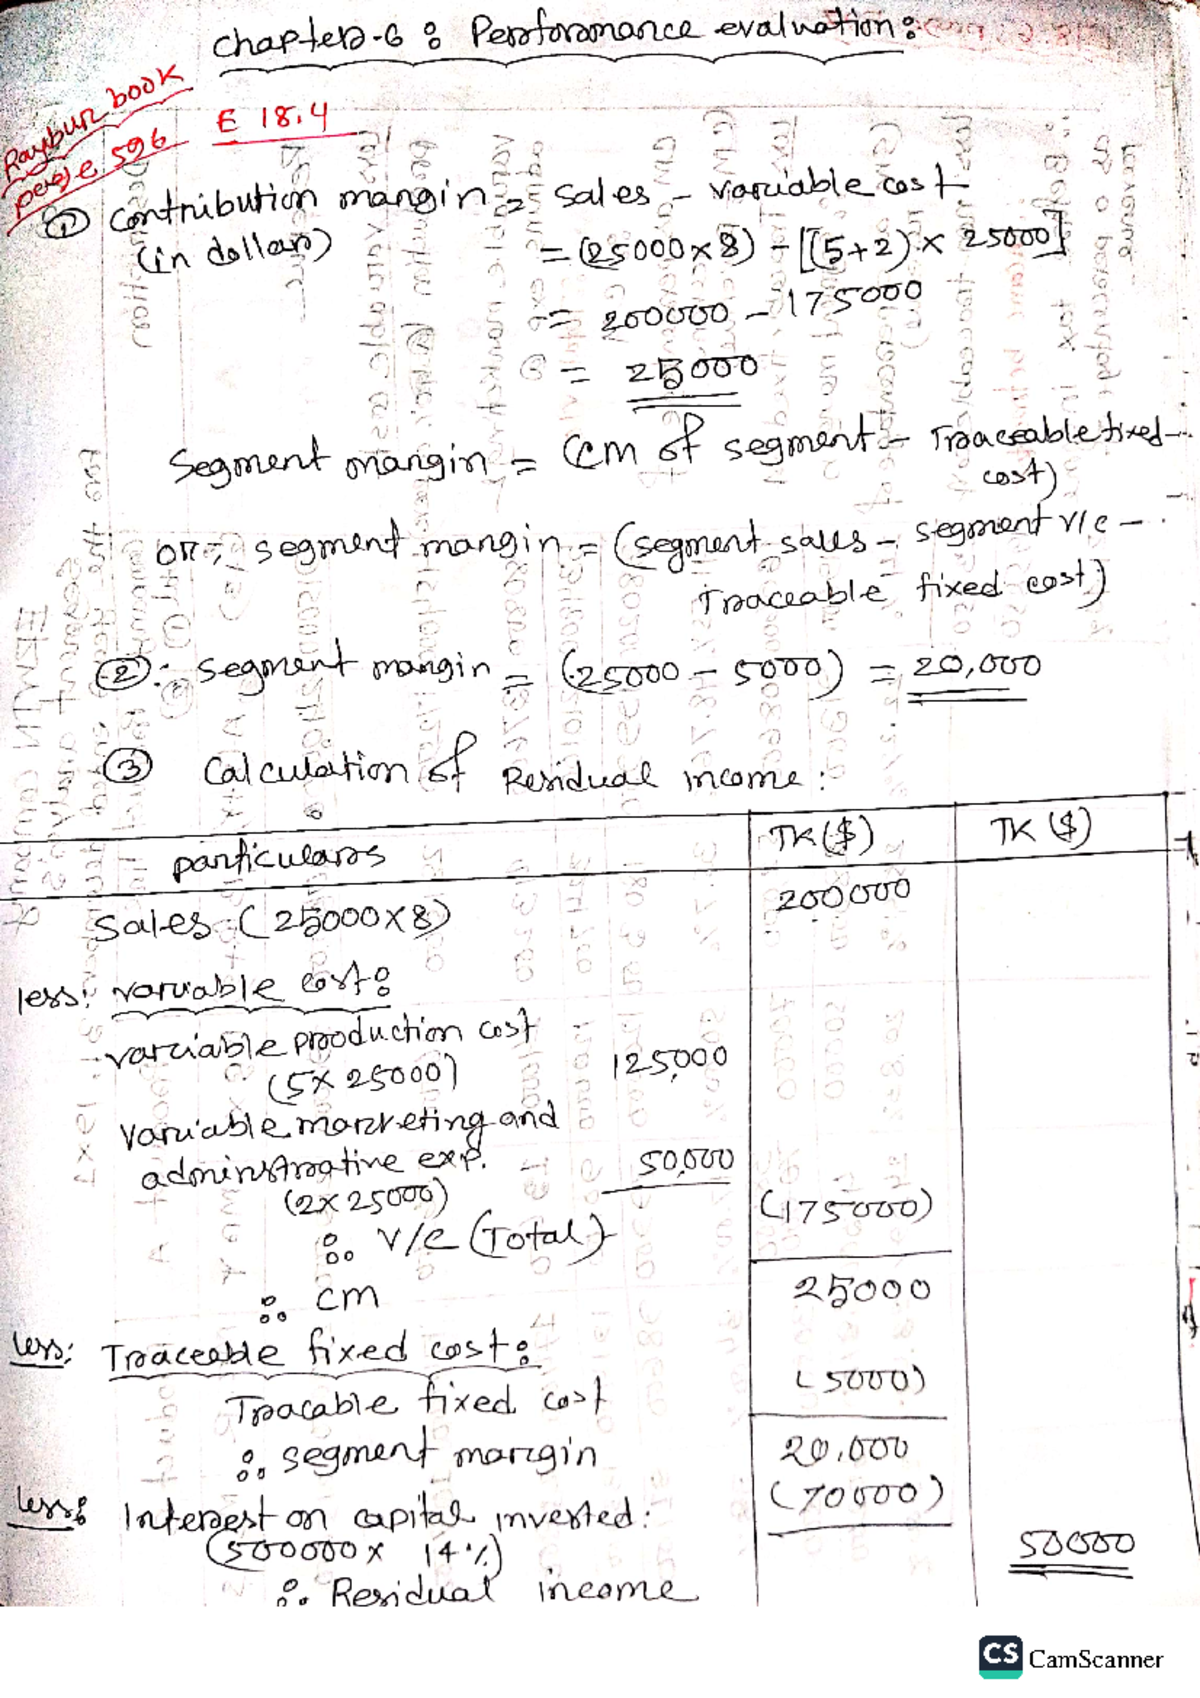 chapter-6 : Performance evaluation:
Rayburn book
page 596
E 18.4
① contribution margin = sales - variable cost
(in dollars)
= (25000 x 8) - [(5+2) x 25000]
= 200000 - 175000
= 25000
Segment margin = (CM of segment - Traceable fixed
cost)
or, segment margin = (segment sales - segment v/c -
Traceable fixed cost)
②: segment margin = (25000 - 5000) = 20,000
③ Calculation of Residual income:
particulars TK ($) TK ($)
Sales (25000 x 8) 200000
less: variable cost:
variable production cost
(5 x 25000) 125,000
Variable marketing and
adminstrative exp. 50,000
(2 x 25000) (175000)
∴ v/c (Total)
∴ CM 25000
Less: Traceable fixed cost:
Tracable fixed cost (5000)
∴ segment margin 20,000
Less: Interest on capital inversted: (70000)
(500000 x 14%) 50000
∴ Residual income
CS CamScanner